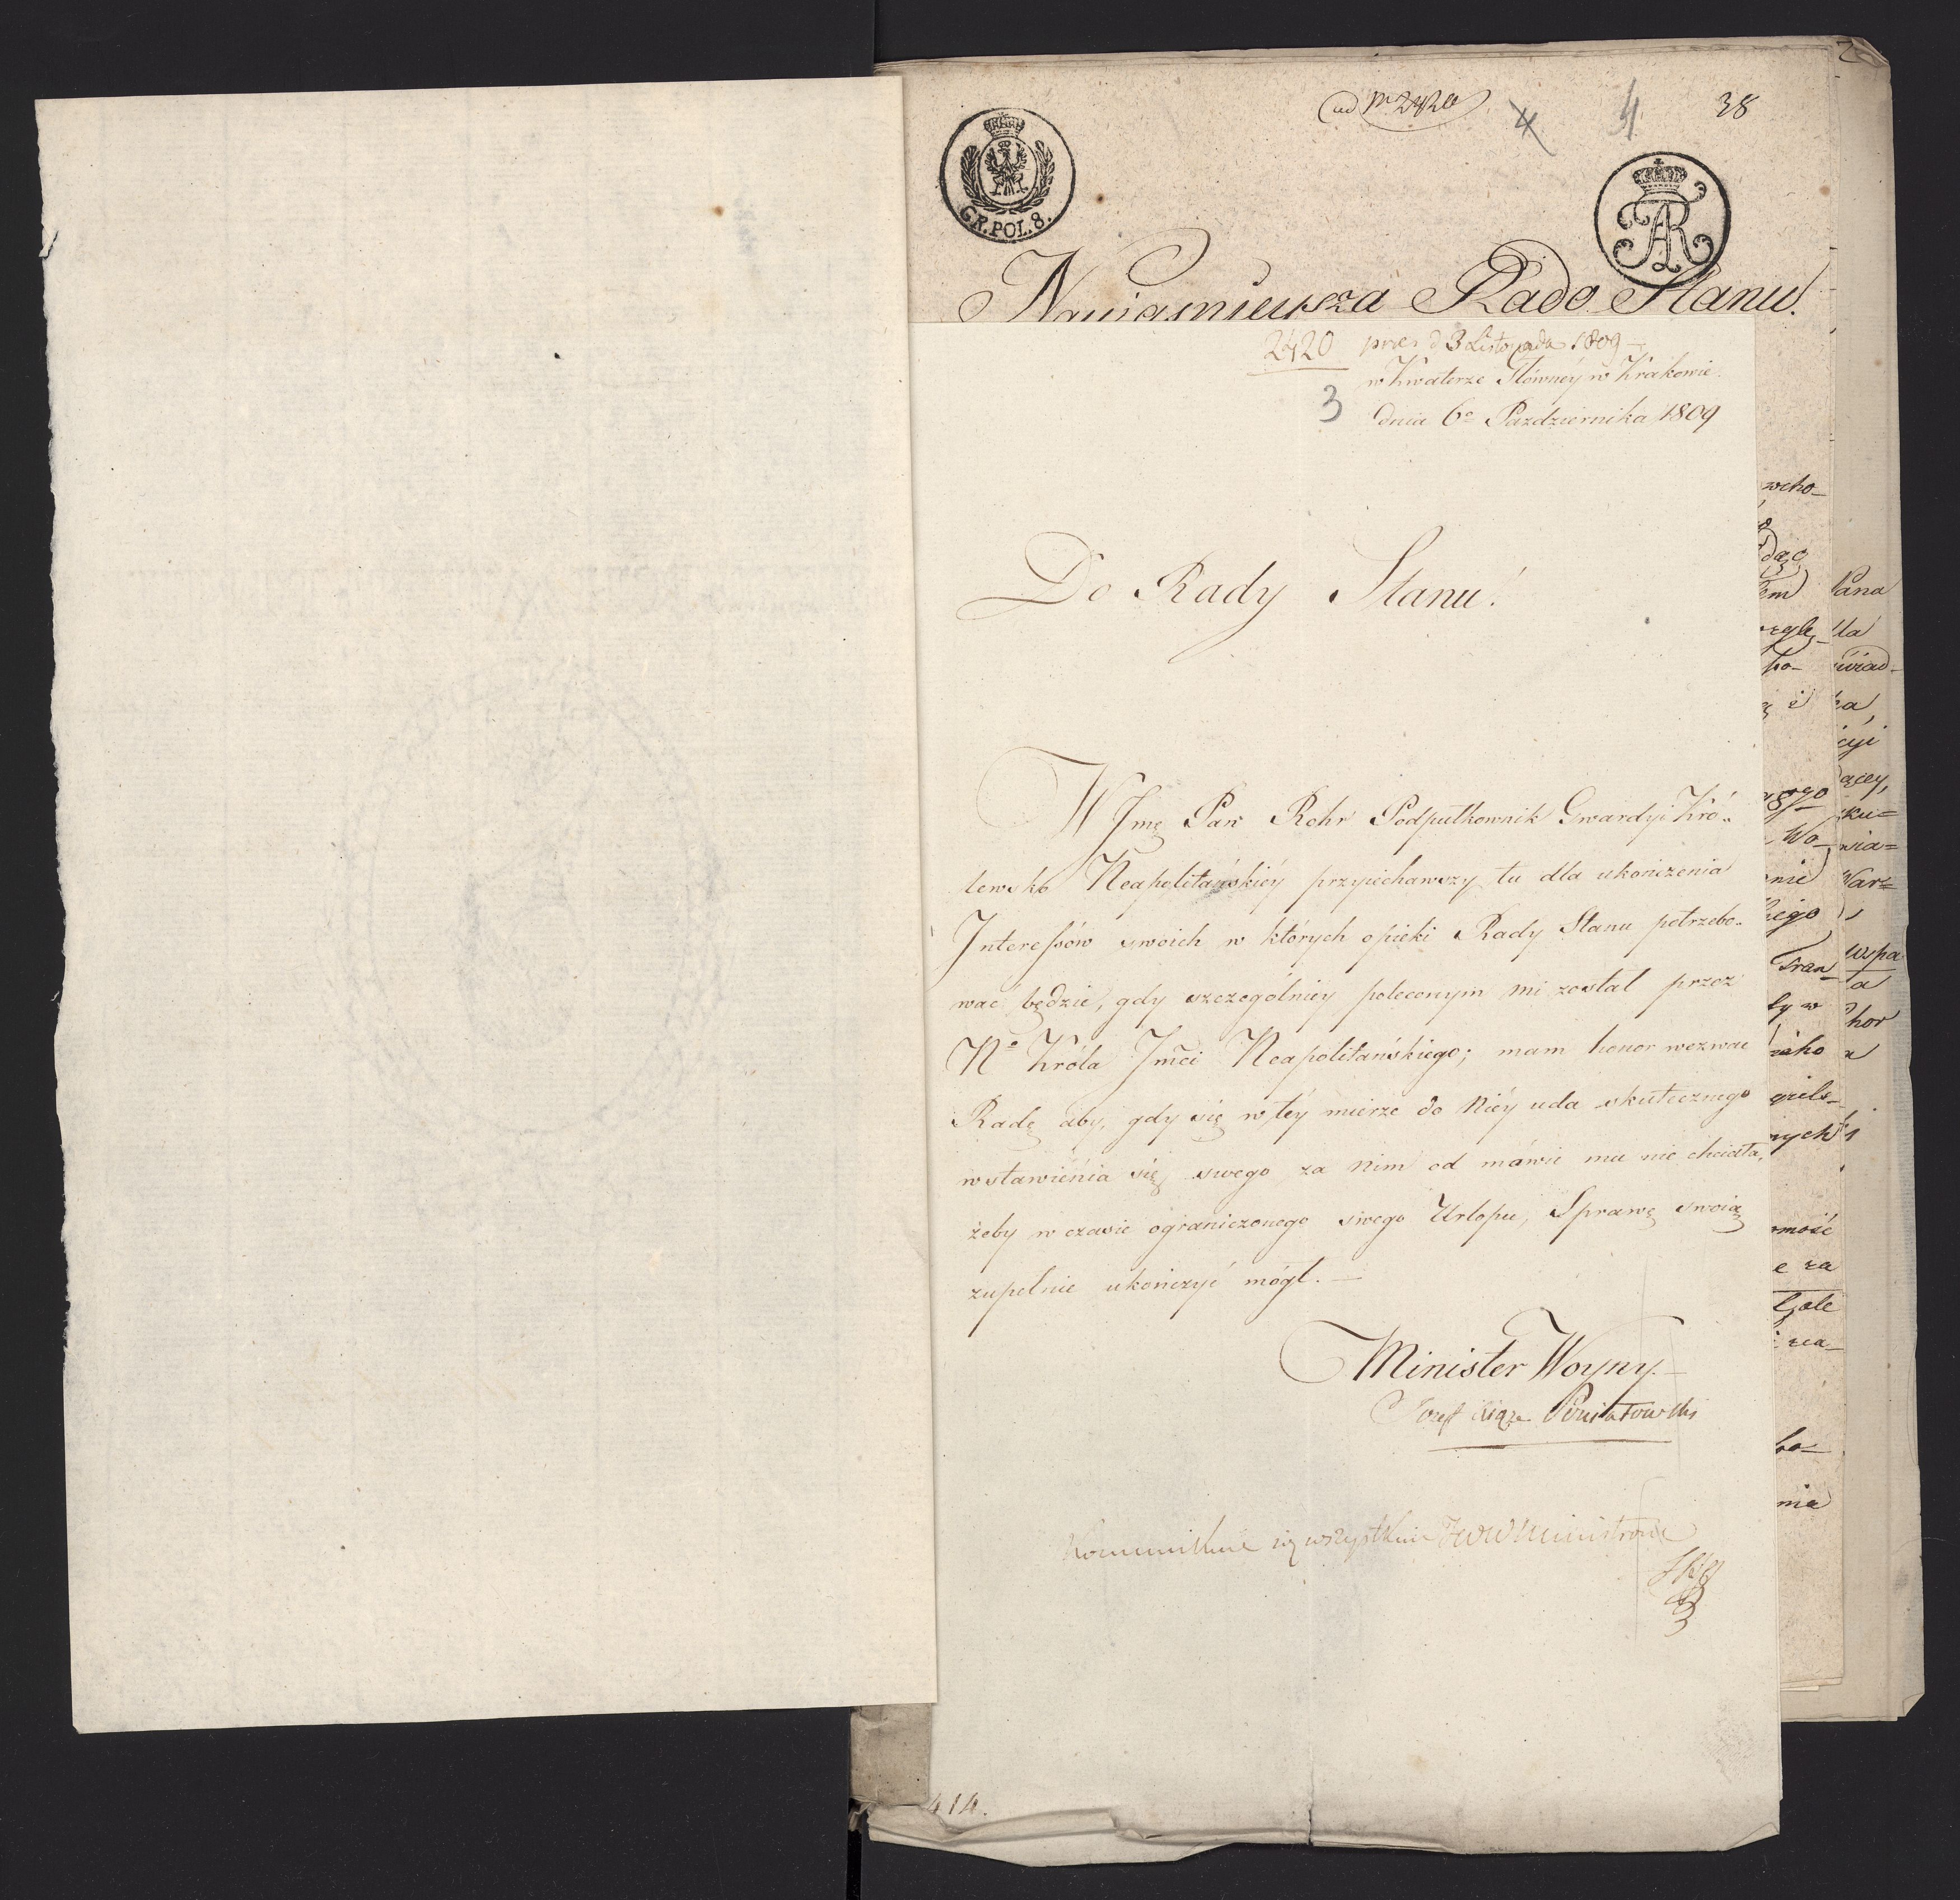 ad Nr 2420
4
4
38
GR. POL. 8.
AR
Nayiasnieysza Rado Stanu!
2420 pres d 3 Listopada 1809
w Kwaterze Główney w Krakowie
3
dnia 6º Pazdziernika 1809
Do Rady Stanu!
W Jmę Pan Rohr Podpułkownik Gwardyi Kró-
lewsko Neapolitańskiéy przyiechawszy tu dla ukończenia
Interessów swoich w których opieki Rady Stanu potrzebo-
wać będzie, gdy szczególniéy poleconym mi został przez
Nº Króla Jmci Neapolitańskiego; mam honor wezwać
Radę aby, gdy się w téy mierze do Niéy uda skutecznego
wstawienia się swego za nim od mówić mu nie chciała,
żeby w czasie ograniczonego swego Urlopu, Sprawę swoią
zupełnie ukończyć mógł. —
Minister Woyny. —
Jozef Xiąze Poniatowski
Kommunikuie się wszystkim JWW Ministrom
414.
wcho-
dzą
Pana
dla
po-
wiad-
i
ka
cyi
Wo-
nie
War-
iego
Tran-
wspa
a
ły w
nych
mość
e za
nia